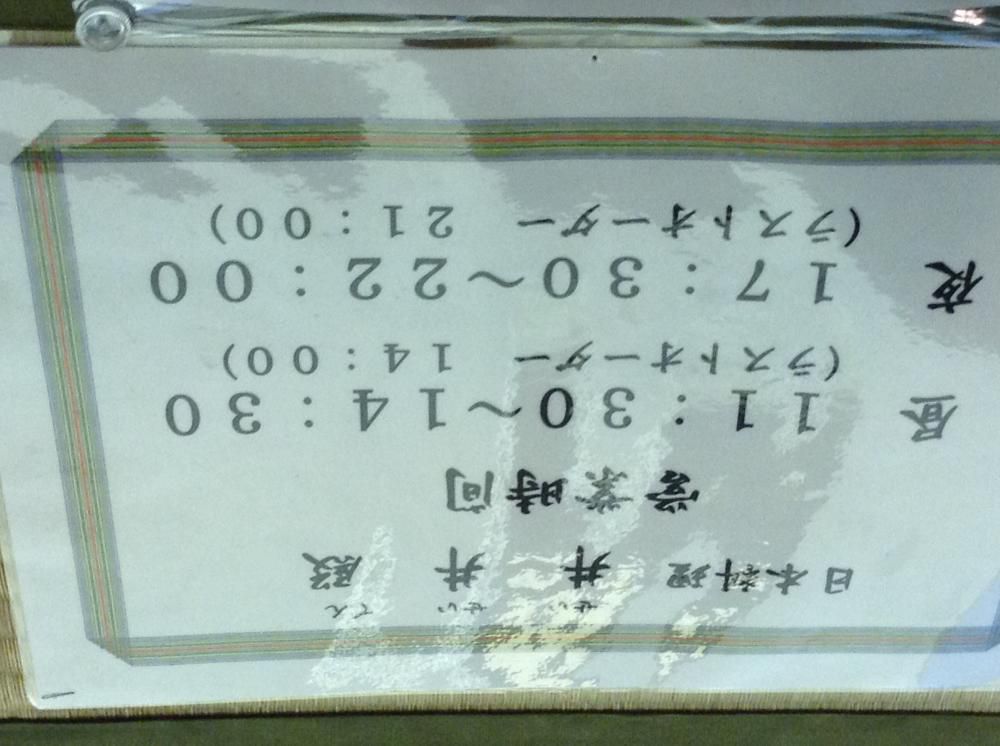 せい せい でん
日本料理 井 井 殿
営業時間
昼 11：30～14：30
(ラストオーダー 14：00)
夜 17：30～22：00
(ラストオーダー 21：00)